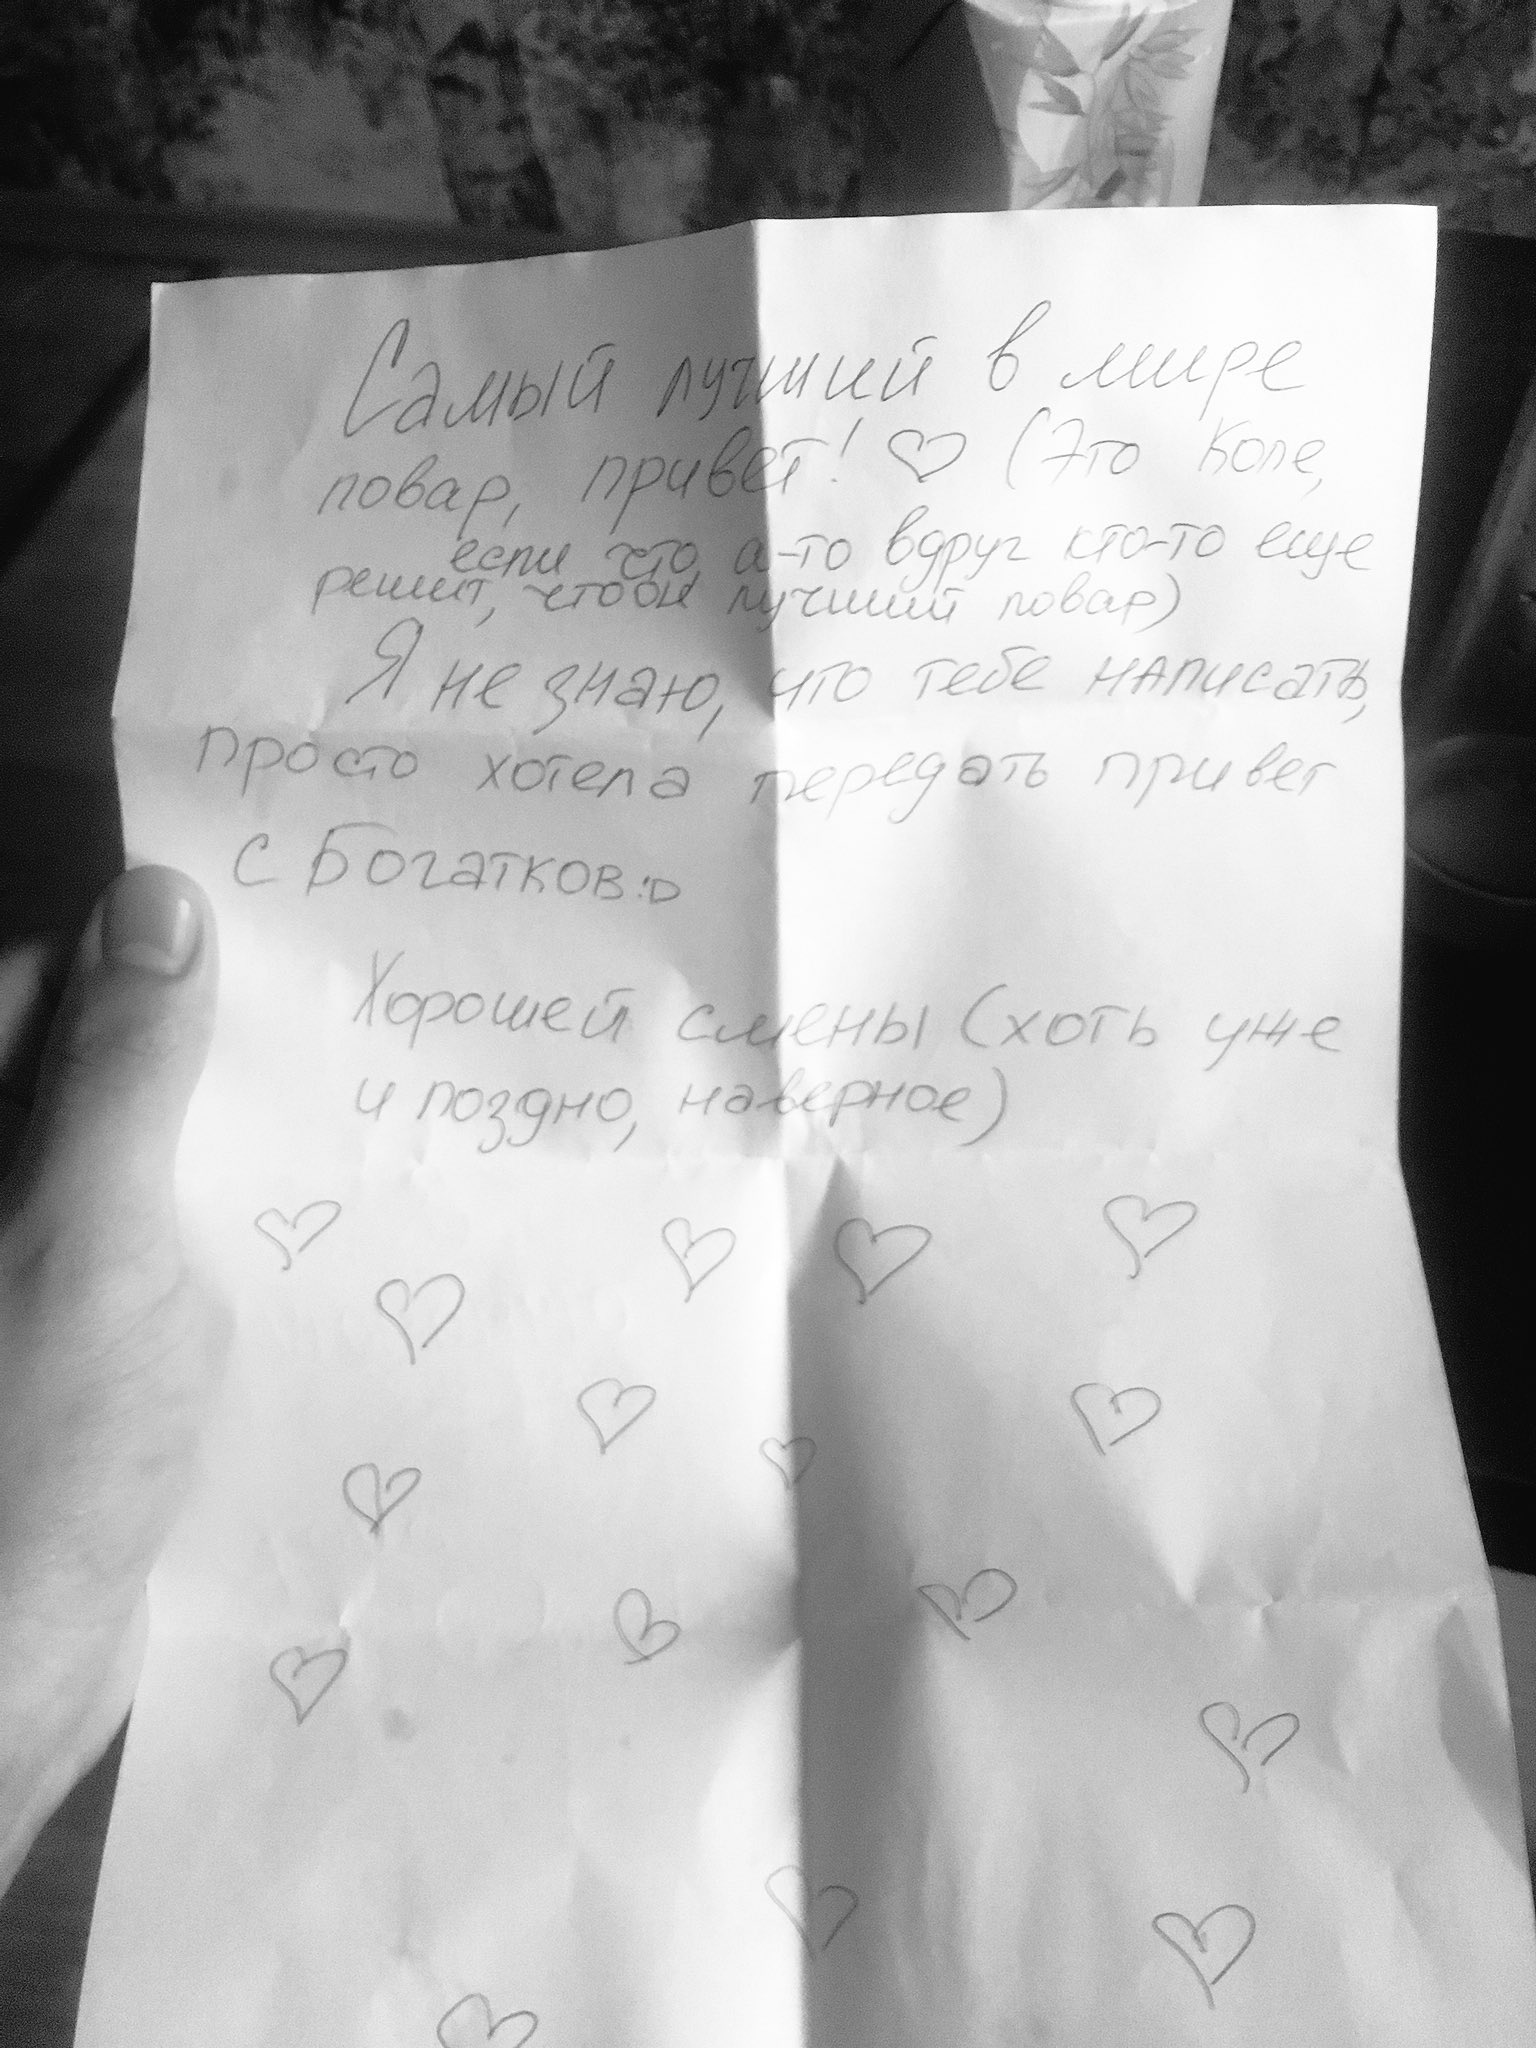 Самый лучший в мире
повар, привет! ♡ (Это Коле,
если что а-то вдруг кто-то еще
решит, что он лучший повар)
Я не знаю, что тебе написать,
просто хотела передать привет
с Богатков :D
Хорошей смены (хоть уже
и поздно, наверное)